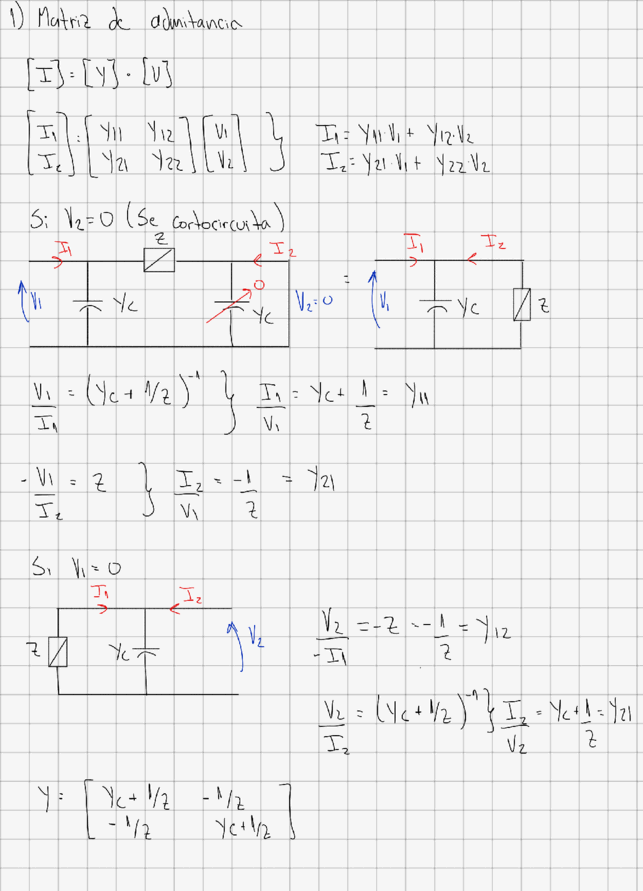 1) Matriz de admitancia
[I] = [Y] · [V]
[I1 I2] = [Y11 Y12 Y21 Y22] [V1 V2] } I1 = Y11·V1 + Y12·V2
I2 = Y21·V1 + Y22·V2
Si V2=0 (Se cortocircuita)
I1 Z I2 = I1 I2
V1 Yc 0 Yc V2=0 V1 Yc Z
V1/I1 = (Yc + 1/Z)^-1 } I1/V1 = Yc + 1/Z = Y11
-V1/I2 = Z } I2/V1 = -1/Z = Y21
Si V1=0
I1 I2
Z Yc V2
V2/-I1 = -Z -- 1/Z = Y12
V2/I2 = (Yc + 1/Z)^-1 } I2/V2 = Yc + 1/Z = Y21
Y = [Yc + 1/Z -1/Z
-1/Z Yc + 1/Z]